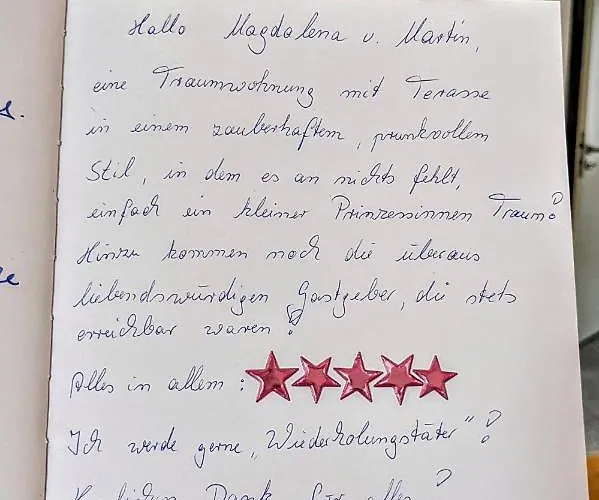 Hallo Magdalena u. Martin,
eine Traumwohnung mit Terasse
in einem zauberhaftem, prunkvollem
Stil, in dem es an nichts fehlt,
einfach ein kleiner Prinzessinnen Traum!
Hinzu kommen noch die überaus
liebendswürdigen Gastgeber, die stets
erreichbar waren!
Alles in allem :
Ich werde gerne „Wiederholungstäter"!
Herzlichen Dank für alles!